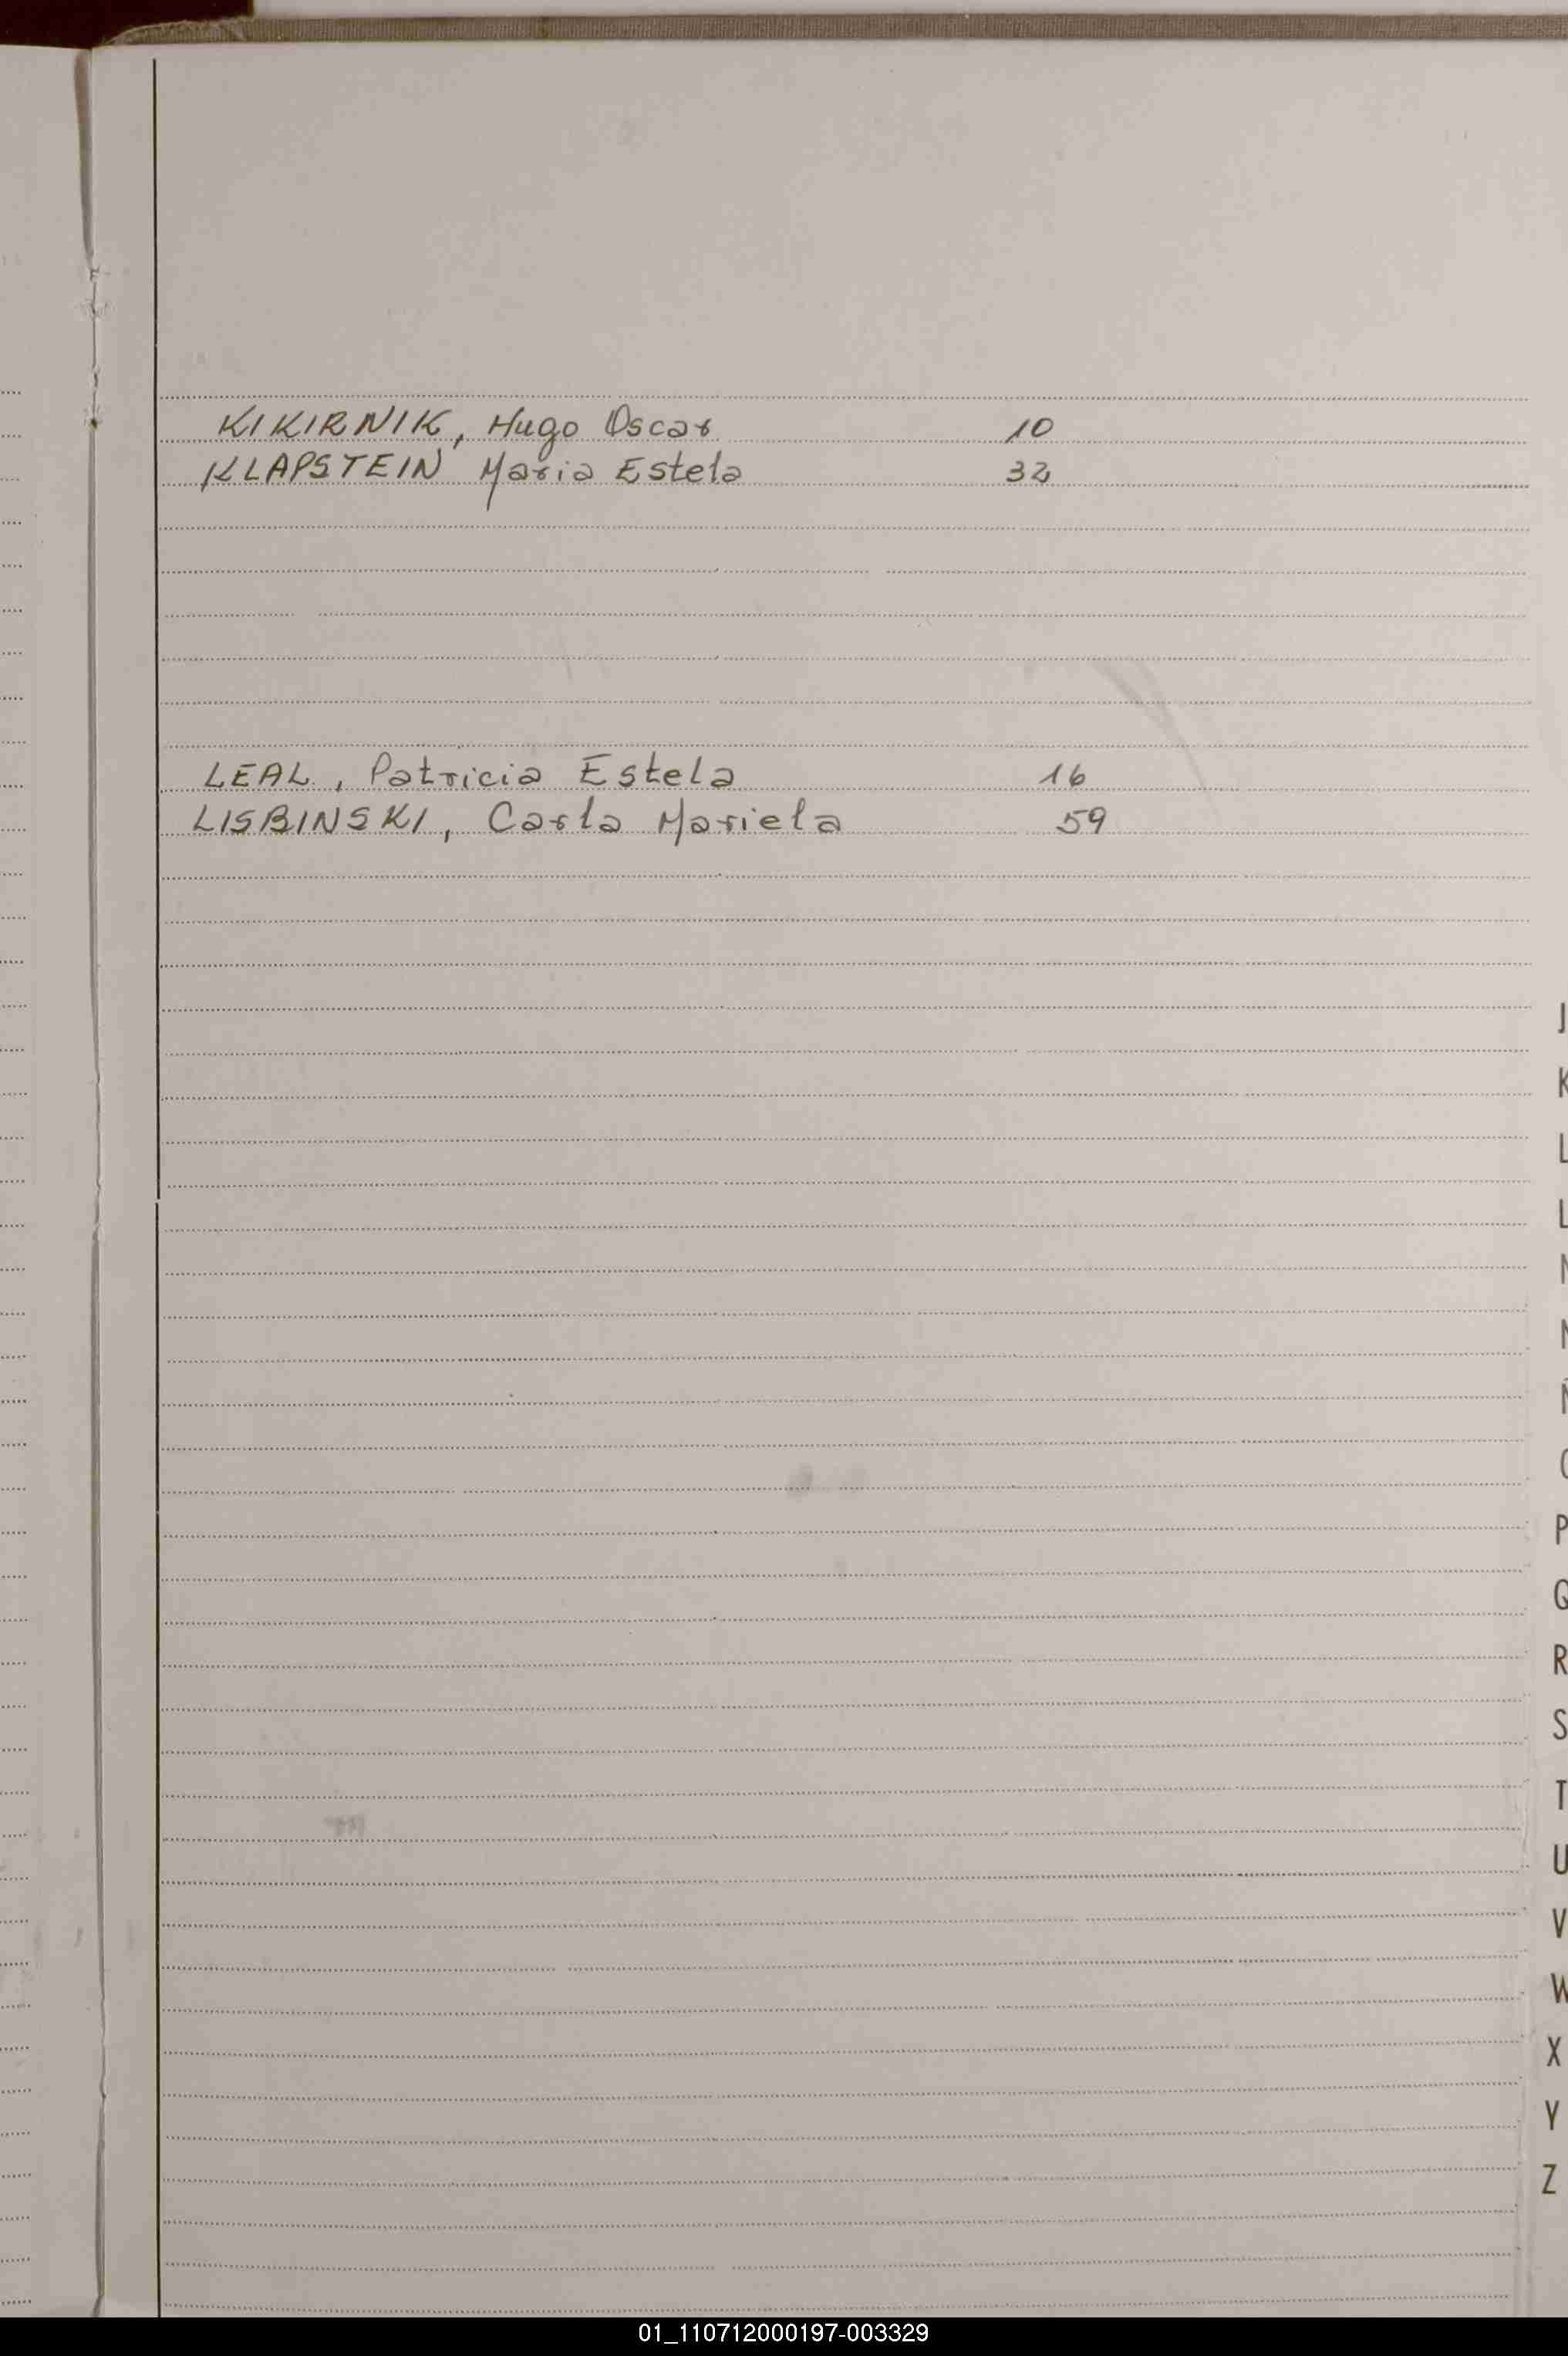 KIKIRNIK, Hugo Oscar 10
KLAPSTEIN Maria Estela 32
LEAL, Patricia Estela 16
LISBINSKI, Carla Mariela 59
J
K
L
L
N
N
Ñ
O
P
Q
R
S
T
U
V
W
X
Y
Z
01_110712000197-003329